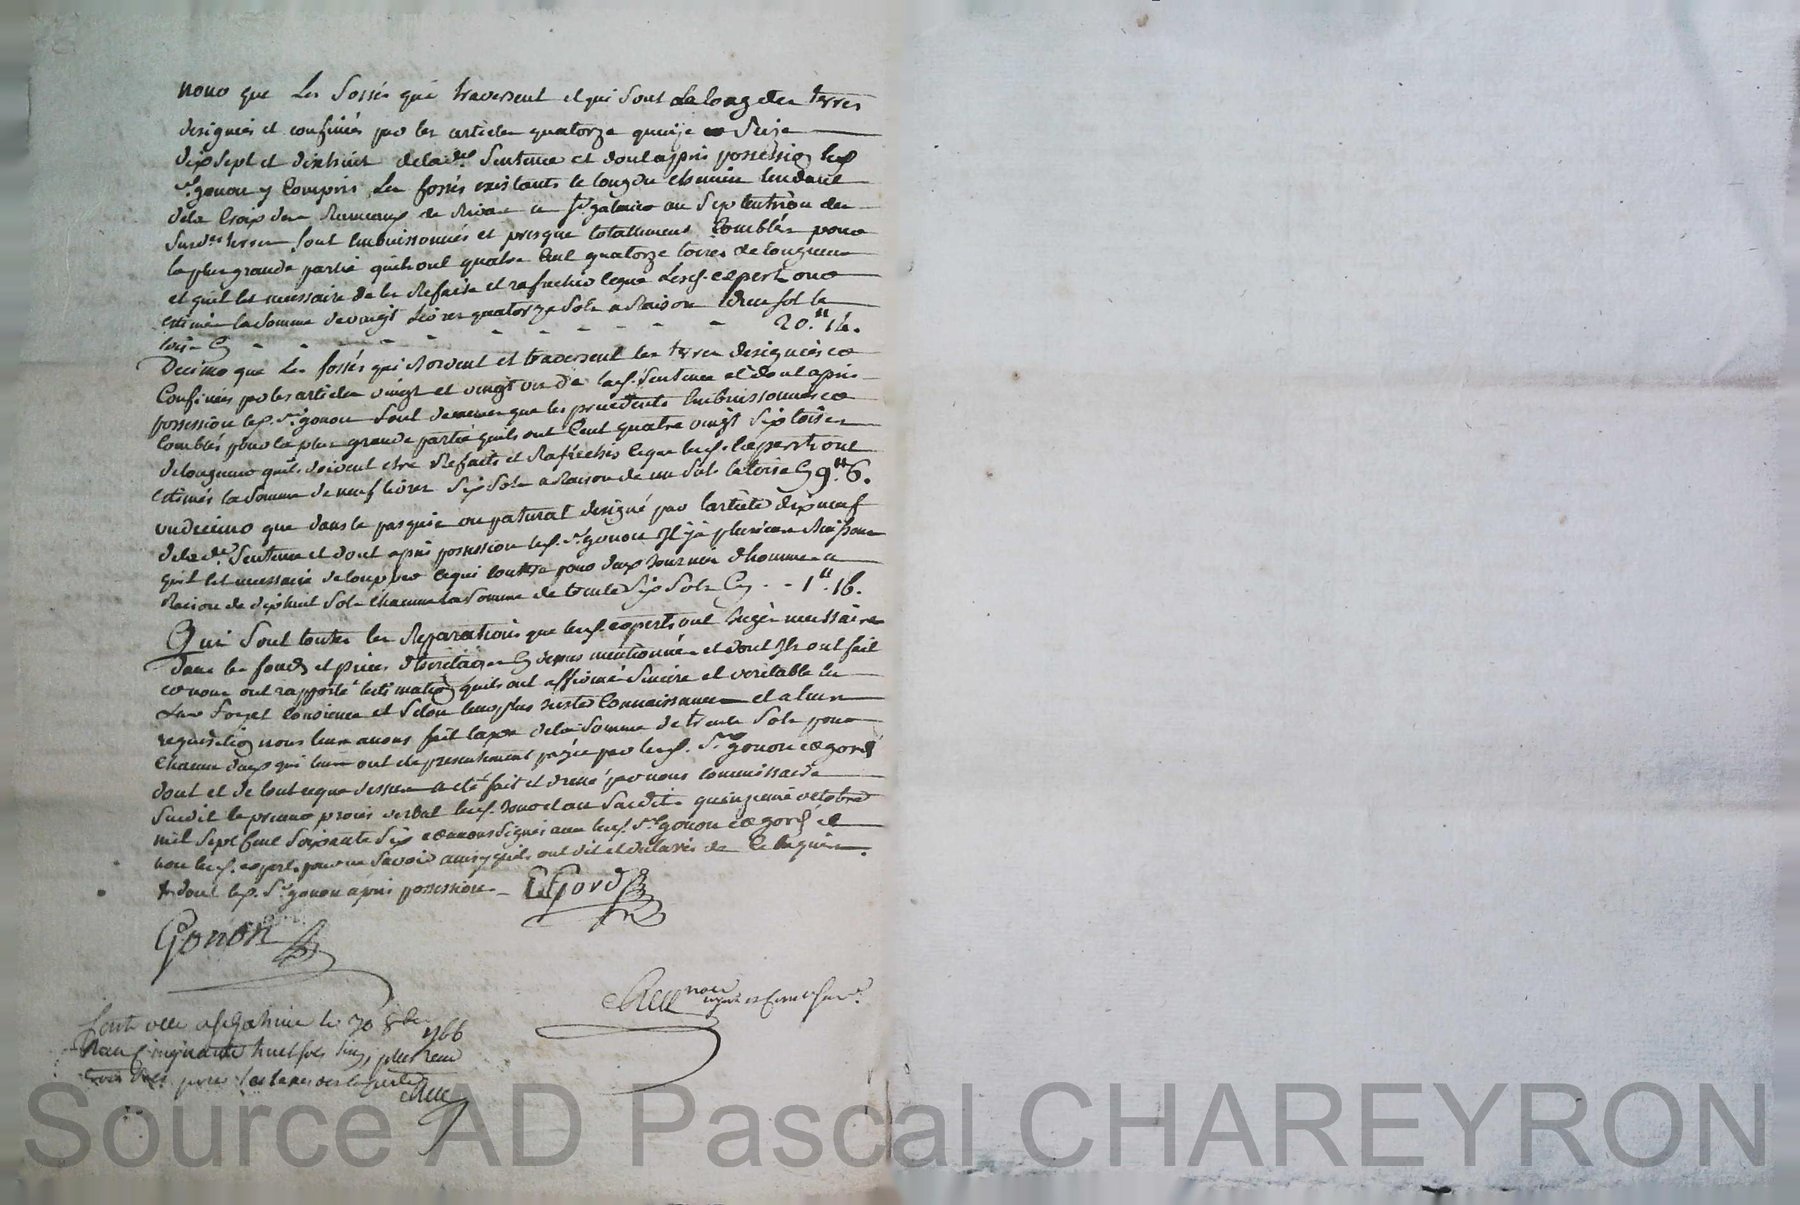 nono que Les fossés qui traversent et qui sont Le long des terres
designées et confinées par les articles quatorze quinze Seize
dix sept et dixhuit de lad.e Sentence et dont a pris possession led.
s.r gonon y Compris Les fossés existants le long du chemin tendant
de la Croix des Rameaux de a s.t galmier au Septentrion des
Terres sont Embuissonnés et presque totallement Comblés pour
la plus grande partie quils ont quatre Cent quatorze toises de longueur
et quil Est necessaire de les Refaire et rafraichir ceque Lesd. experts ont
estimé la somme de vingt Livres quatorze Sols a Raison dun sol la
toise Cy - - - - - - - 20.# 14.
Decimo que Les fossés qui et traversent les terres designées et
Confinées par les articles vingt et vingt un de lad. Sentence et dont a pris
possession led. S.r gonon sont de meme que les precedents Embuissonnés et
Comblés pour la plus grande partie quils ont Cent quatre vingt Six toises
de longueur quils doivent etre Refaits et Rafraichis ceque lesd. Experts ont
estimés la Somme de neuf livres Six Sols a Raison de un Sols la toise Cy 9.# 6.
undecimo que dans le pasquier ou patural designé par larticle dix neuf
de la d.e Sentence et dont a pris possession led. s.r gonon Il y a plusieurs Buissons
quil Est necessaire de couper ce qui Coutera pour deux Journées dhommes a
Raison de dixhuit Sols Chacune La Somme de trente Six Sols Cy - - 1.# 16.
Qui Sont toutes les Reparations que lesd. experts ont Jugés necessaires
dans les fonds et pieces dheritages Cy dessus mentionnés et dont Ils ont fait
et nous ont rapporté lestimation quils ont affirmé Sincere et veritable En
Leur foy et Consience et Selon leur plus Juste Connaissance et a leur
requisition nous leur avons fait taxe de la Somme de trente Sols pour
Chacun deux qui leur ont été presentement payée par lesd. S.rs gonon et gord
dont et de tout ceque dessus a été fait et dressé par nous commissaire
Susdit le present procès verbal lesd. Jour et an Susdits quinzieme octobre
mil Sept Cent Soixante Six et avons Signé avec lesd. S.rs gonon et gord et
non lesd. experts pour ne Savoir ainsy quils ont dit et declarés de Ce Requis.
+ dont led. S.r gonon a pris possession - CGord
Gonon
Conte olle a St Galmier le 30 8bre 1766
Reçu Cinquante huit sols Six,
pour